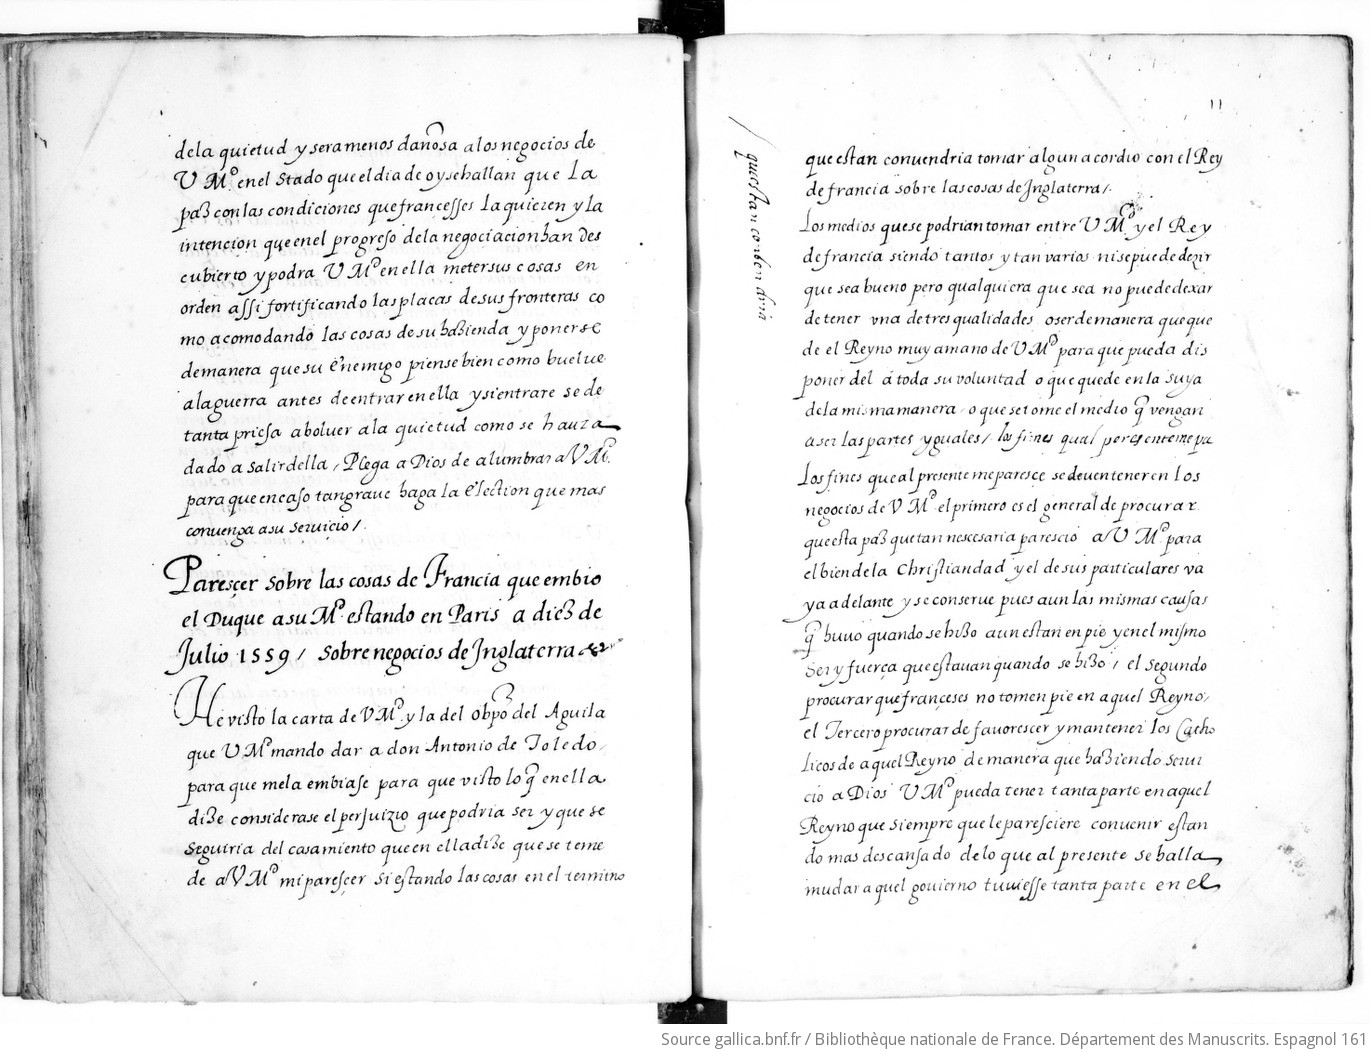 dela quietud y sera menos dañosa a los negocios de
V M.ᵈ en el stado que el dia de oy se hallan que la
paz con las condiciones que francesses la quieren y la
intencion que en el progreso dela negociacion han des
cubierto y podra V M.ᵈ en ella meter sus cosas en
orden assi fortificando las placas de sus fronteras co
mo acomodando las cosas de su hazienda y ponerse
de manera que su enemigo piense bien como buelue
a la guerra antes de entrar en ella y si entrare se de
tanta priesa a boluer a la quietud como se haura
dado a salir della / Plega a Dios de alumbrar a V M.ᵈ
para que en caso tan graue haga la election que mas
conuenga a su seruicio /.
Paresçer sobre las cosas de Francia que embio
el Duque a su M.ᵈ estando en Paris a diez de
Julio 1559 / sobre negocios de Inglaterra &
He visto la carta de V M.ᵈ y la del obpo del Aguila
que V M.ᵈ mando dar a don Antonio de Toledo,
para que me la embiase para que visto lo q̃ en ella
dize considerase el perjuizio que podria ser y que se
seguiria del casamiento que en ella dize que se teme
de a V M.ᵈ mi paresçer si estando las cosas en el termino
11
que estan conbendria
que estan conuendria tomar algun acordio con el Rey
de francia sobre las cosas de Inglaterra /.
Los medios que se podrian tomar entre V M.ᵈ y el Rey
de francia siendo tantos y tan varios ni se puede dezir
que sea bueno pero qualquiera que sea no puede dexar
de tener vna de tres qualidades o ser de manera que que
de el Reyno muy a mano de V M.ᵈ para que pueda dis
poner del a toda su voluntad o que quede en la suya
dela misma manera o que se tome el medio q̃ vengan
a ser las partes yguales / los fines qual
Los fines que al presente me paresce se deuen tener en los
negocios de V M.ᵈ el primero es el general de procurar
que esta paz que tan nescesaria parescio a V M.ᵈ para
el bien dela Christiandad y el de sus particulares va
ya adelante y se conserue pues aun las mismas causas
q̃ huuo quando se hizo aun estan en pie y en el mismo
ser y fuerça que estauan quando se hizo / el segundo
procurar que franceses no tomen pie en aquel Reyno,
el Tercero procurar de fauorescer y mantener los Catho
licos de aquel Reyno de manera que haziendo serui
cio a Dios V M.ᵈ pueda tener tanta parte en aquel
Reyno que siempre que le paresciere conuenir estan
do mas descansado delo que al presente se halla
mudar aquel gouierno tuuiesse tanta parte en el
Source gallica.bnf.fr / Bibliothèque nationale de France. Département des Manuscrits. Espagnol 161